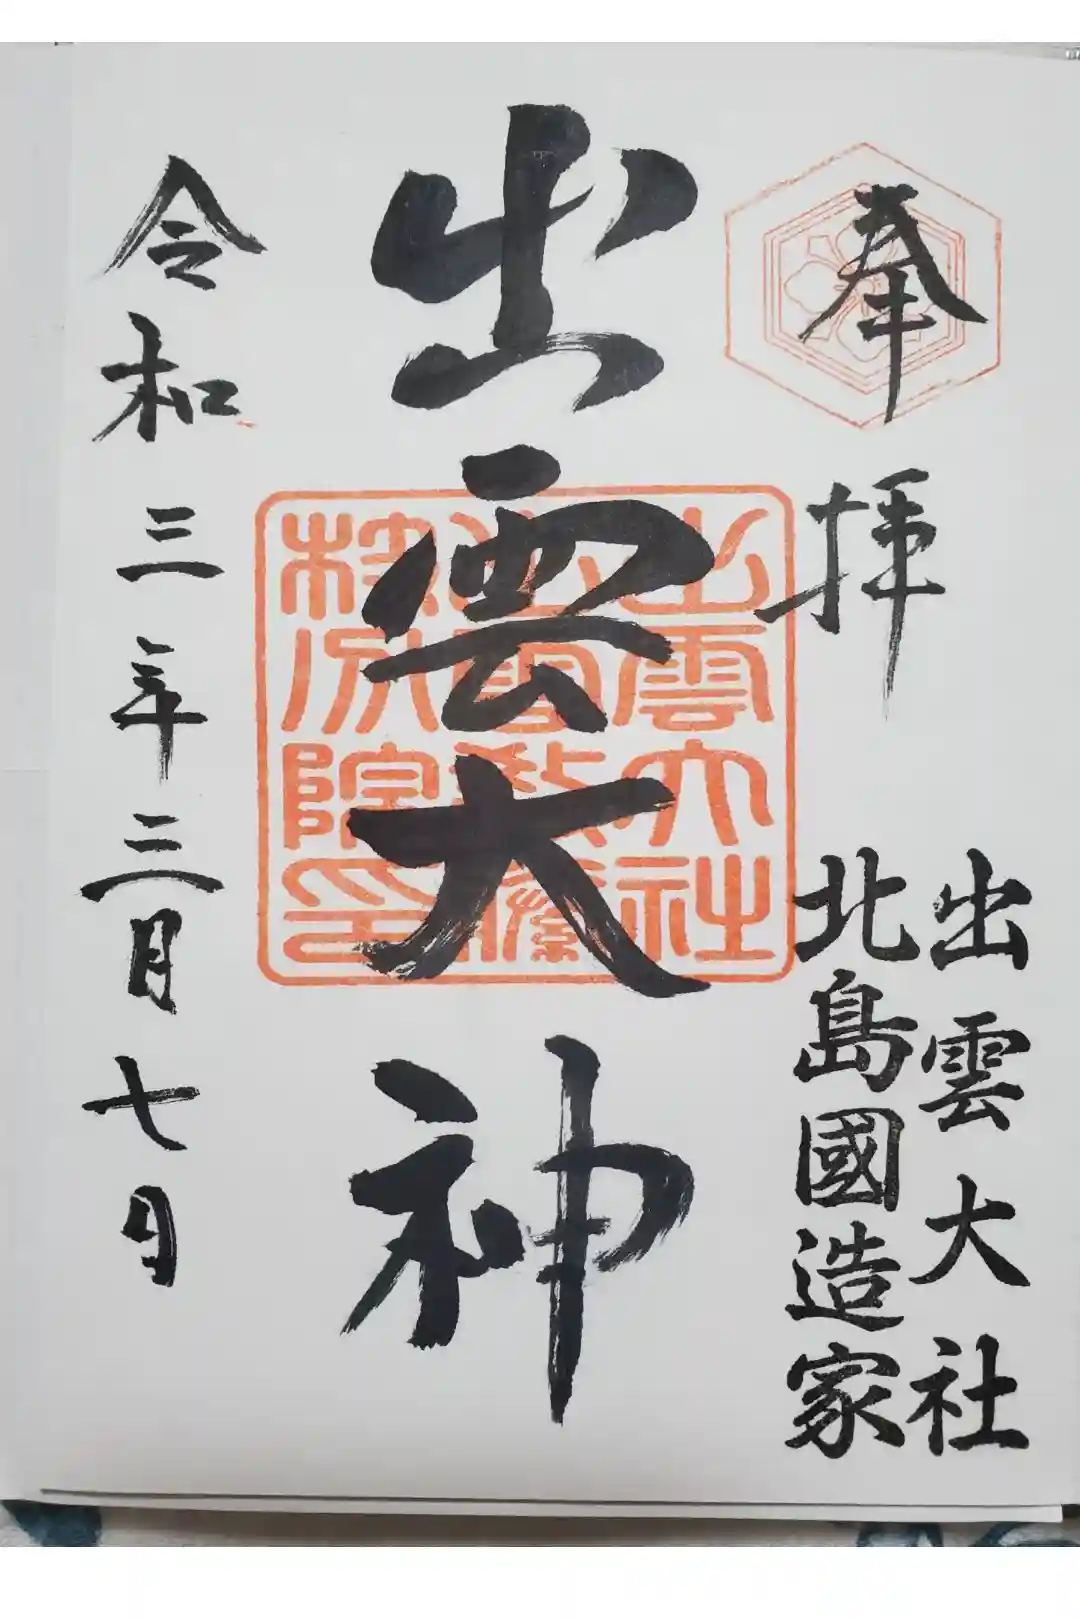 奉拝
出雲大社
北島國造家
出雲大神
出雲大社
分院印
令和三年三月七日